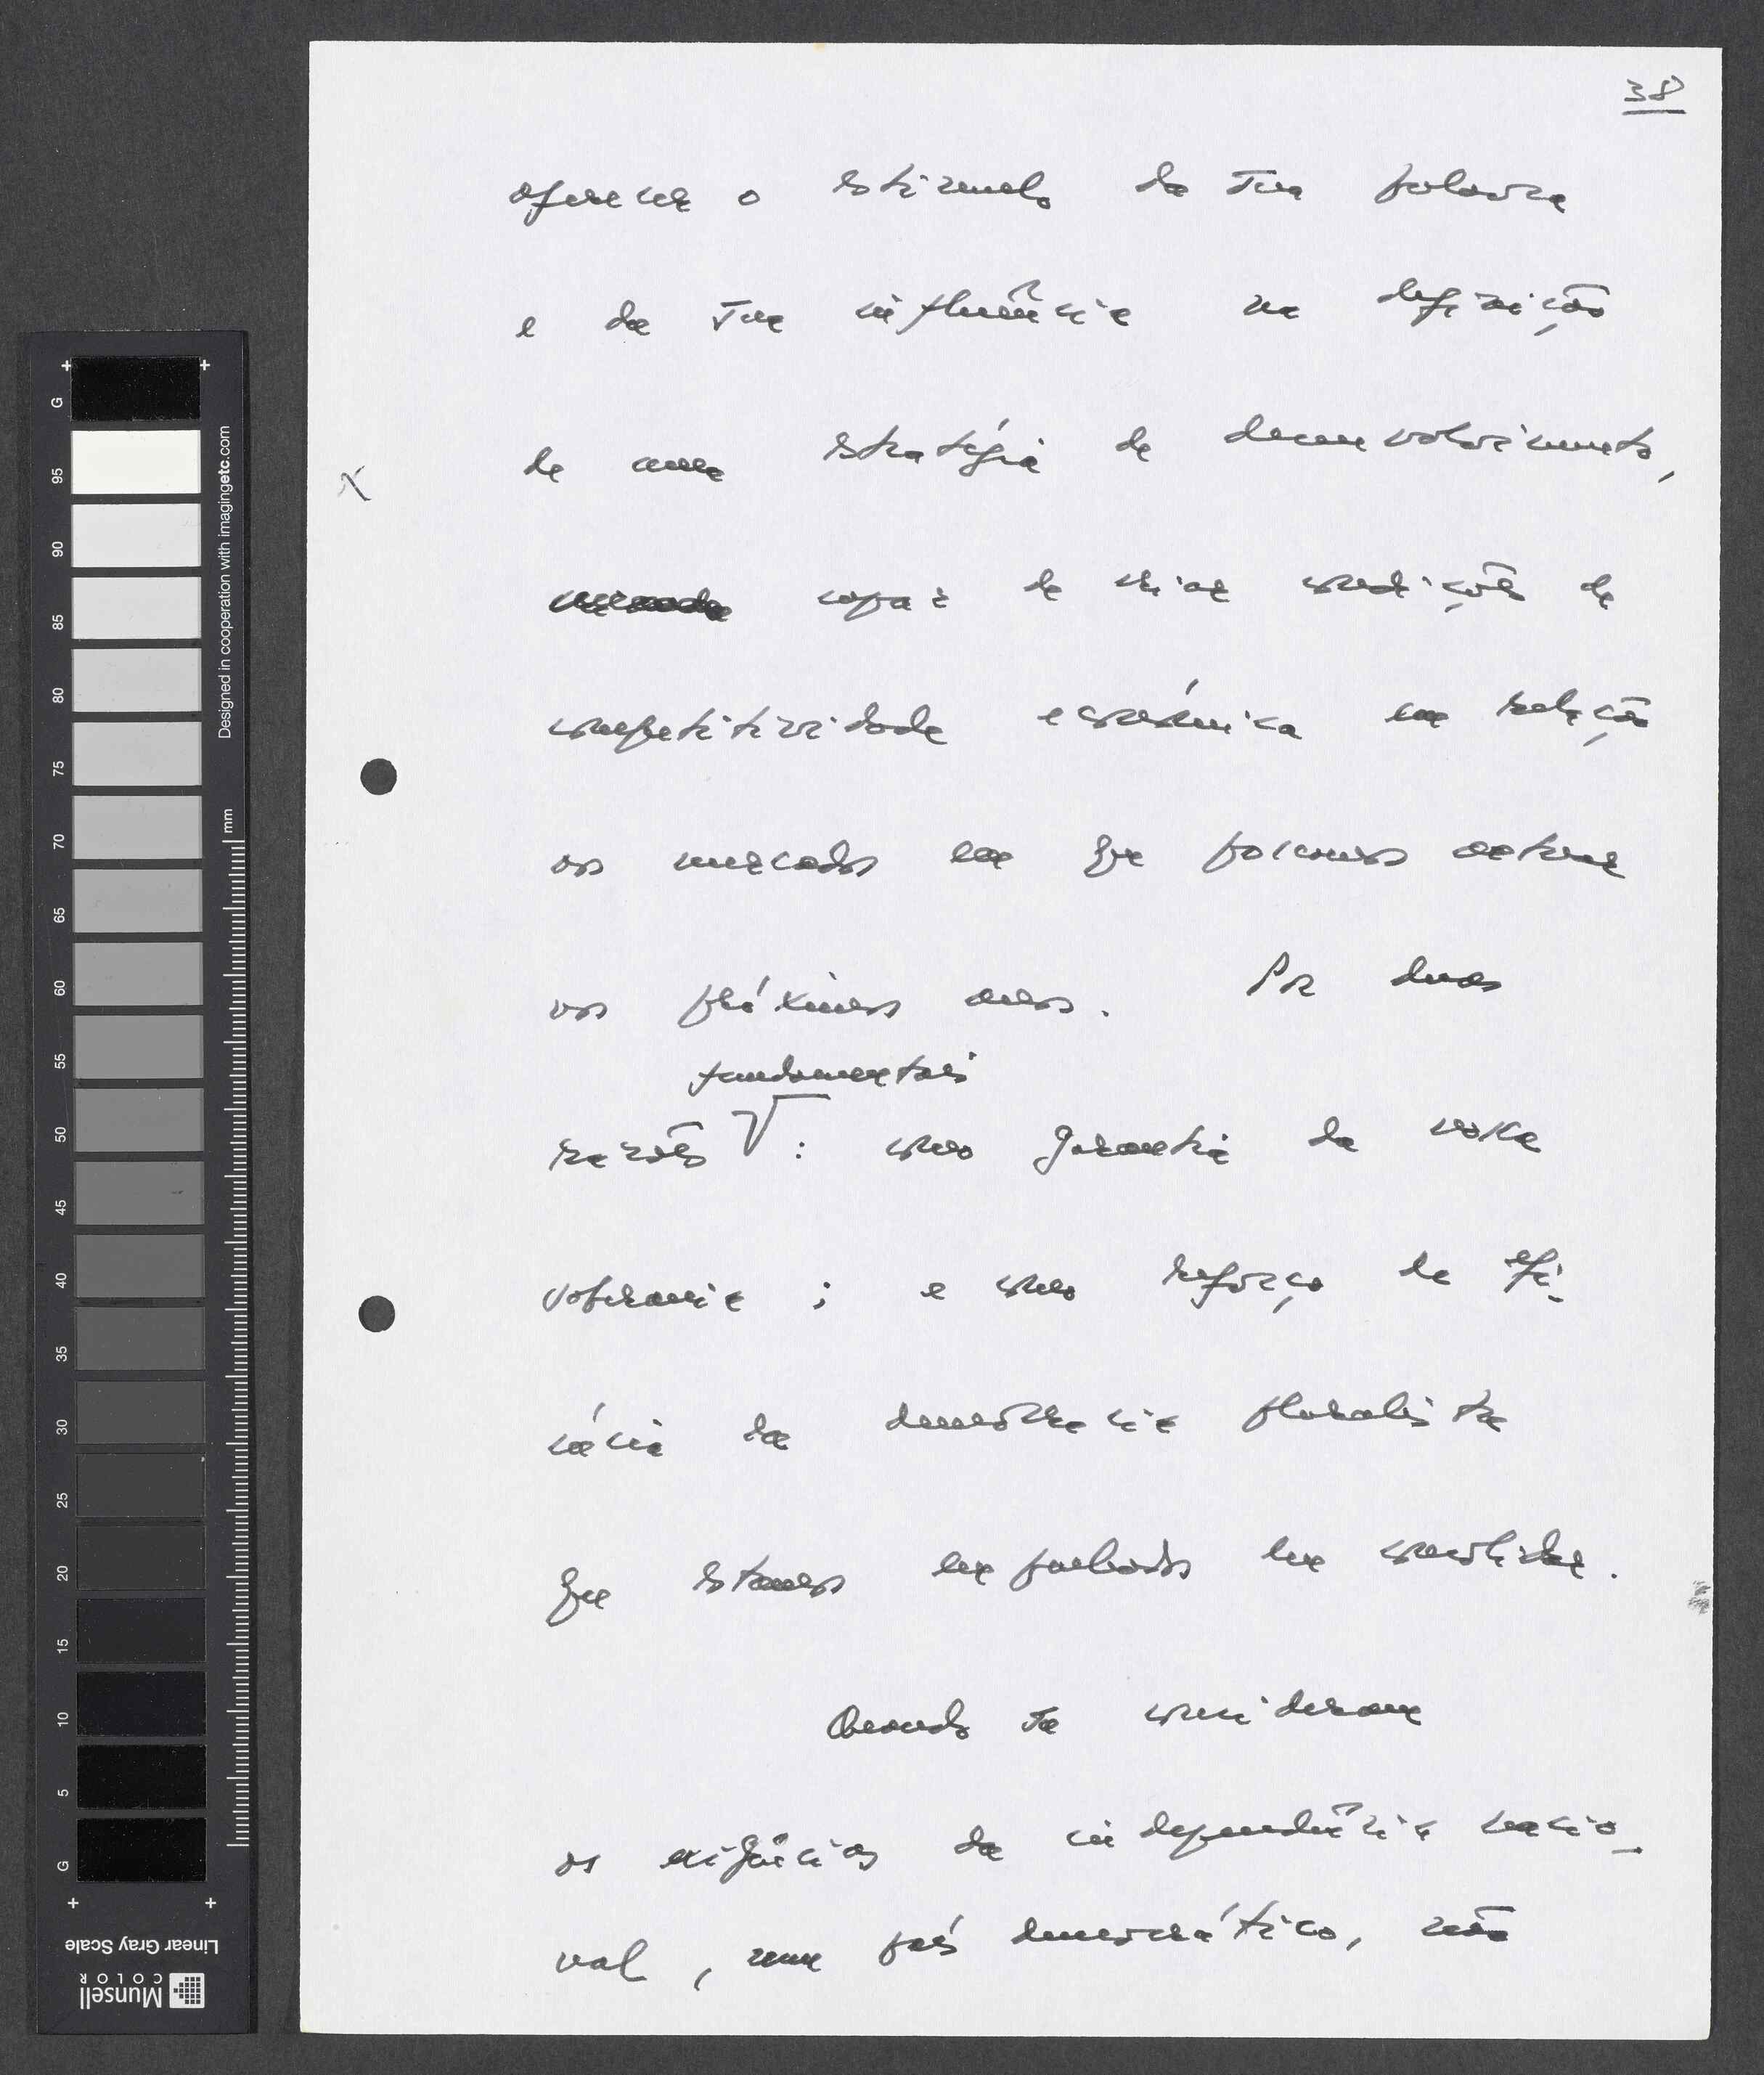 38
oferecer o estímulo da sua palavra
e da sua influência na definição
de uma estratégia de desenvolvimento,
capaz de criar condições de
competitividade económica em relação
aos mercados em que possamos actuar
nos próximos anos. Por duas
fundamentais
razões : como garantia da nossa
soberania ; e como reforço da efi-
cácia da democracia pluralista
que estamos empenhados em consolidar.
Quando se consideram
as exigências da independência nacio-
nal, num país democrático, não
G
95
90
85
80
75
70
65
60
55
50
45
40
35
30
25
20
15
10
5
G
mm
Designed in cooperation with imagingetc.com
Linear Gray Scale
Munsell
COLOR